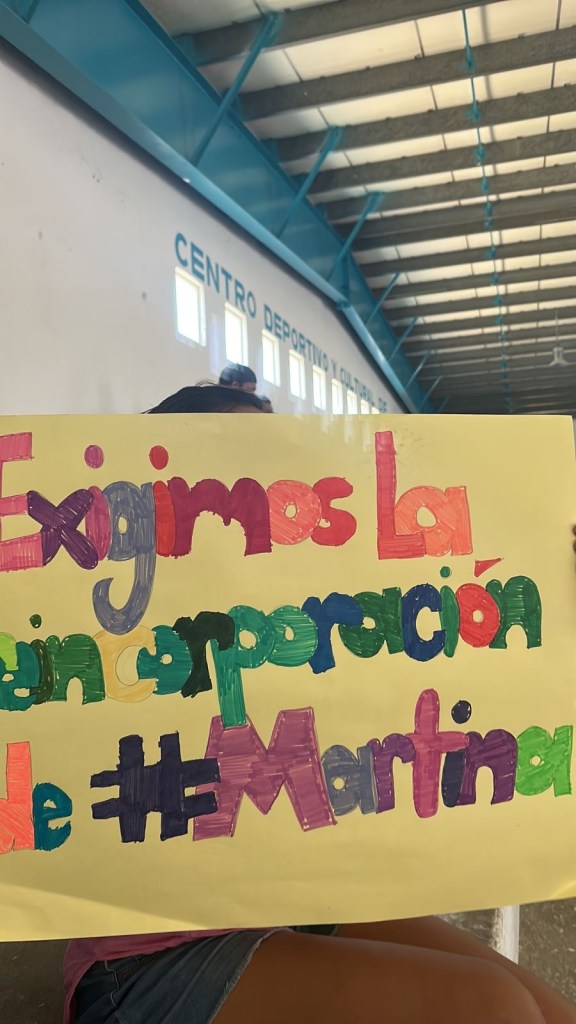 CENTRO DEPORTIVO Y CULTURAL DE
Exigimos La
reincorporación
de #Martina